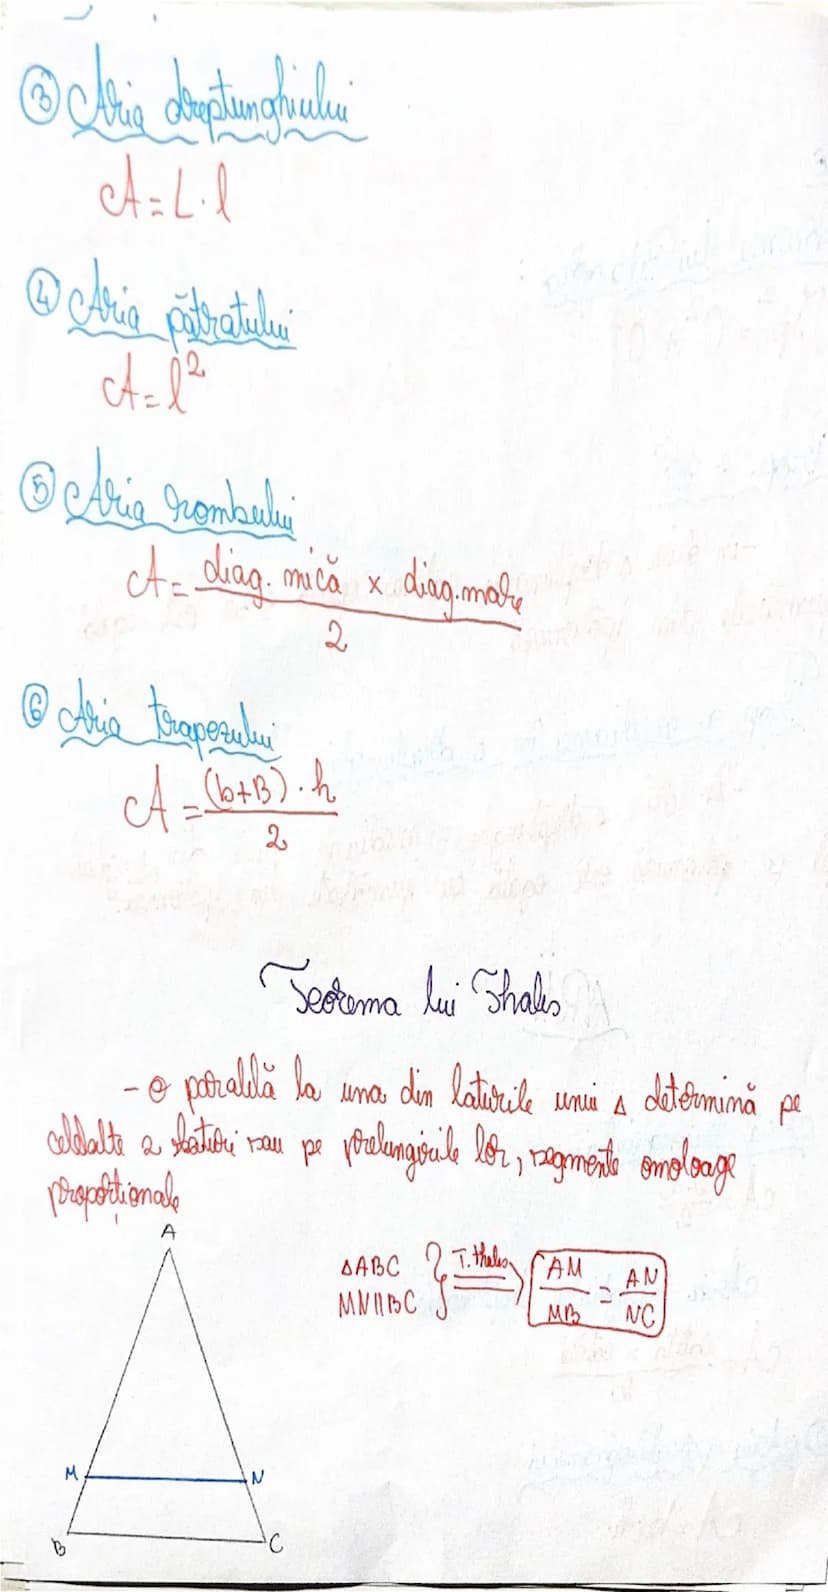 ③ Aria dreptunghiului
A = L · l
④ Aria pătratului
A = l²
⑤ Aria rombului
A = diag. mică x diag. mare
2
⑥ Aria trapezului
A = (b+B) · h
2
Teorema lui Thales
- o paralelă la una din laturile unui Δ determină pe
celelalte 2 laturi sau pe prelungirile lor, segmente omoloage
proporționale
A
ΔABC } T. thales ⟹ AM/MB = AN/NC
MN||BC
M N
B C